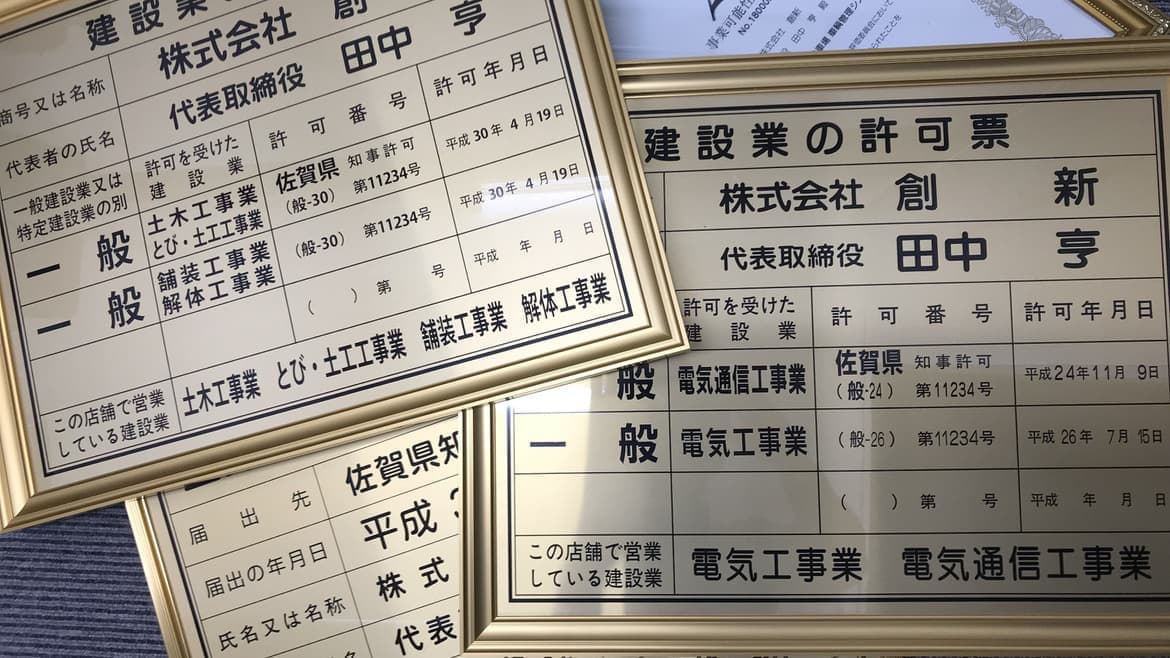 建設業の
商号又は名称 株式会社 創
代表者の氏名 代表取締役 田中 亨
一般建設業又は特定建設業の別
許可を受けた建設業
許可番号
許可年月日
一般
土木工事業
とび・土工工事業
佐賀県 知事許可
(般-30) 第11234号
平成30年4月19日
一般
舗装工事業
解体工事業
(般-30) 第11234号
平成30年4月19日
( ) 第 号
平成 年 月 日
この店舗で営業している建設業
土木工事業 とび・土工工事業 舗装工事業 解体工事業
事業可能性
No.18000
建設業の許可票
株式会社 創 新
代表取締役 田中 亨
許可を受けた
建設業
許可番号
許可年月日
般 電気通信工事業
佐賀県 知事許可
(般-24) 第11234号
平成24年11月9日
一般 電気工事業
(般-26) 第11234号
平成26年7月15日
( ) 第 号
平成 年 月 日
この店舗で営業
している建設業
電気工事業 電気通信工事業
届出先 佐賀県知
届出の年月日 平成
氏名又は名称 株式
代表